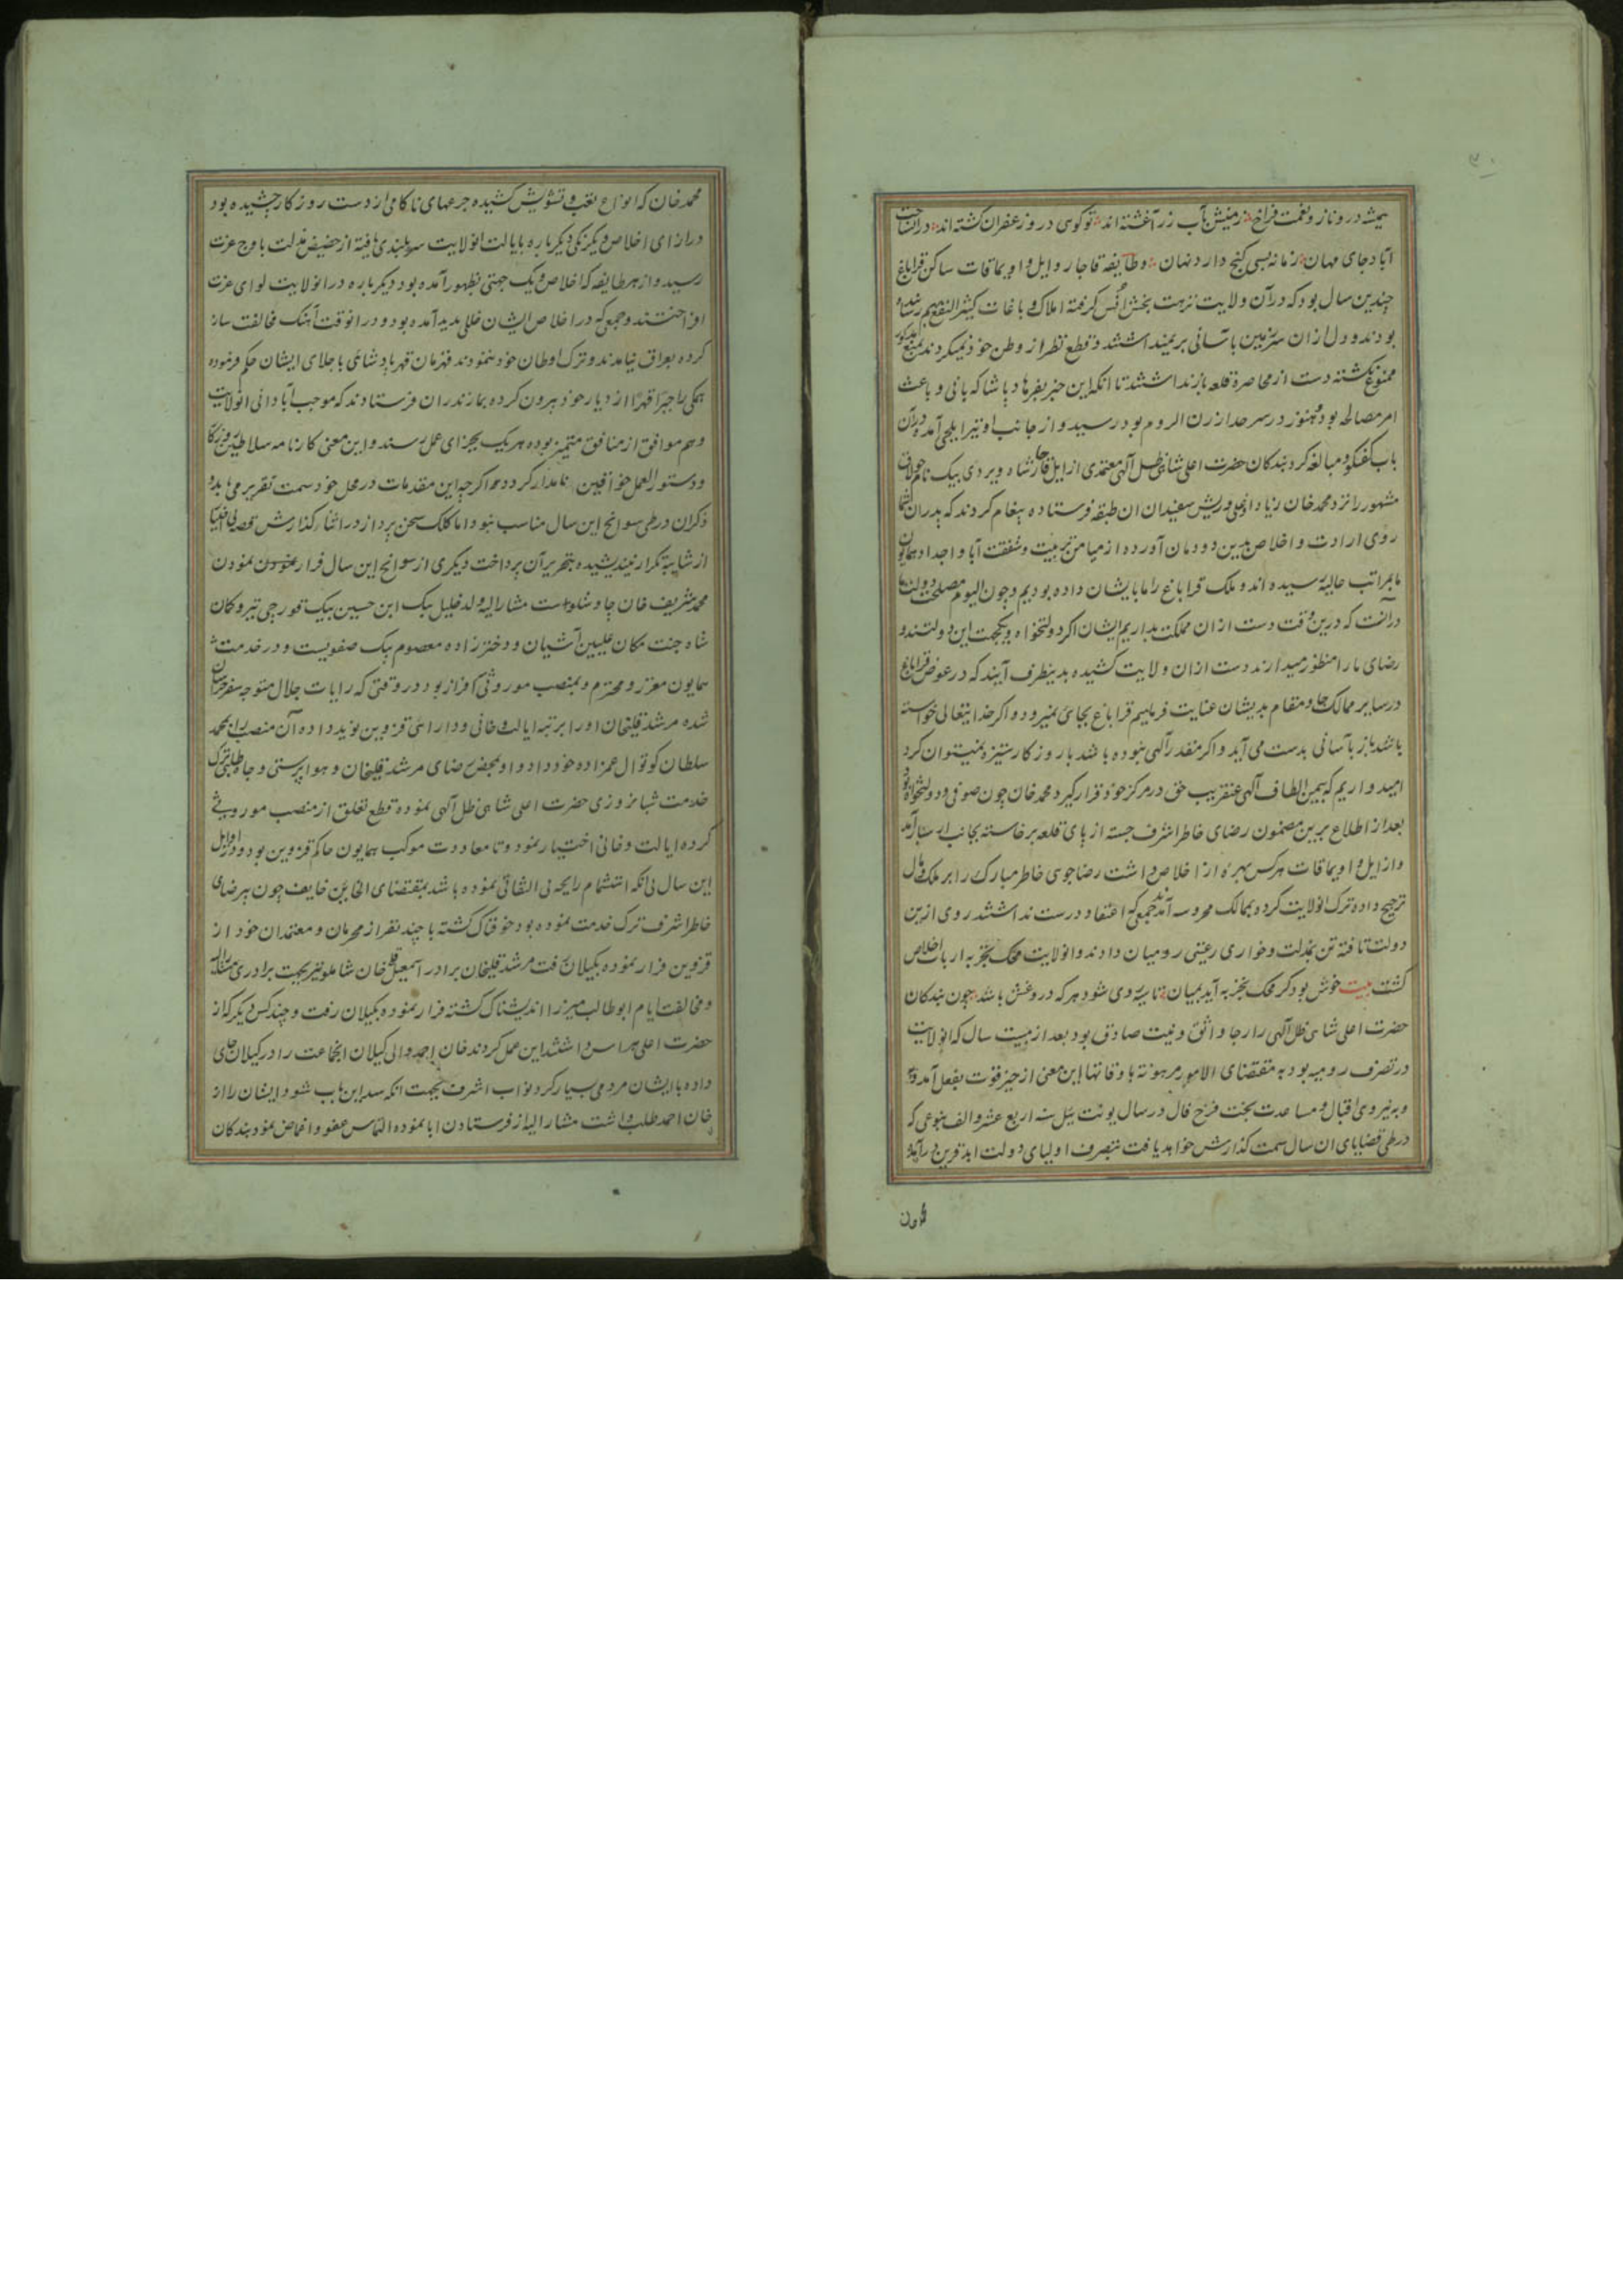 همیشه درو ناز و نعمت فراخ زمینش بآب زر آغشته اند تو کوی درو زعفران کشته اند دران
آباد جای مهان زمانه بسی کنج دارد نهان و طایفه قاجار و ایل و اویماقات ساکن قراباغ
چندین سال بود که در آن ولایت نزهت بخش انس گرفته املاک و باغات کثیر النفع بهم رسانده
بودند و دل ازان سرزمین بآسانی بر نمیداشتند و قطع نظر از وطن خود نمیکردند بمنع
ممنوع نکشته دست از محاصره قلعه باز نداشتند تا انکه این خبر بفرهاد پاشا که بانی و باعث
امر مصالحه بود و هنوز در سرحد ارزن الروم بود رسید و از جانب او نیز ایلچی آمده در آن
باب کفتکو و مبالغه کرد بندکان حضرت اعلی شاهی ظل آلهی معتمدی از ایل قاجار شاه ویردی بیک نام
مشهور را نزد محمد خان زیاد اوغلی و ریش سفیدان ان طبقه فرستاده پیغام کردند که پدران شما
روی ارادت و اخلاص بدین دودمان آورده از میامن تربیت و شفقت آبا و اجداد همایون
ما بمراتب عالیه رسیده اند و ملک قراباغ را ما بایشان داده بودیم و چون الیوم مصلحت دولت ما
در آنست که درین وقت دست از ان مملکت بداریم ایشان اکر دولتخواه و یکجهت این دولتند و
رضای ما را منظور میدارند دست ازان ولایت کشیده بدینطرف آیند که در عوض قراباغ
در سایر ممالک جا و مقام بدیشان عنایت فرماییم قراباغ بجائی نمیرود و اکر خدایتعالی خواسته
باشد باز بآسانی بدست می آید و اکر مقدر آلهی نبوده باشد با روزکار ستیزه نمیتوان کرد
امیدواریم که بیمن الطاف آلهی عنقریب حق در مرکز خود قرار گیرد محمد خان چون صوفی و دولتخواه بود
بعد از اطلاع برین مضمون رضای خاطر اشرف جسته از پای قلعه برخاسته بجانب ارسبار آمد
و از ایل و اویماقات هرکس بهره از اخلاص داشت رضاجوی خاطر مبارک را بر ملک و مال
ترجیح داده ترک انولایت کرد و بممالک محروسه آمدند جمعی که اعتقاد درست نداشتند روی ازین
دولت تافته تن بمذلت و خواری رعیتی رومیان دادند و انولایت محک تجربه ارباب اخلاص
کشت بیت خوش بود کر محک تجربه آید بمیان تا سیه روی شود هر که در وغش باشد چون بندکان
حضرت اعلی شاهی ظل آلهی را رجا واثق و نیت صادق بود بعد از بیست سال که انولایت
در تصرف رومیه بود به مقتضای الامور مرهونة باوقاتها این معنی از حیز قوت بفعل آمده
و به نیروی اقبال و مساعدت بخت فرخ فال در سال یونت ئیل سنه اربع عشر و الف بنوعی که
در طی قضایای ان سال سمت کذارش خواهد یافت بتصرف اولیای دولت ابد قرین درآمد
محمد خان که انواع تعب و تشویش کشیده جرعهای ناکامی از دست روزکار چشیده بود
در ازای اخلاص و یکرنکی دیکر باره بایالت انولایت سربلندی یافته از حضیض مذلت باوج عزت
رسید و از هر طایفه که اخلاص و یک جهتی بظهور آمده بود دیکر باره در انولایت لوای عزت
افراختند و جمعی که در اخلاص ایشان خللی پدید آمده بود و در انوقت آهنک مخالفت ساز
کرده بعراق نیامدند و ترک اوطان خود ننمودند قهرمان قهر پادشاهی باجلای ایشان حکم فرموده
همکی را جبرا قهرا از دیار خود بیرون کرده بمازندران فرستادند که موجب آبادانی انولایت
و هم موافق از منافق متمیز بوده هریک بجزای عمل رسند و این معنی کارنامه سلاطین روزکار
و دستور العمل خواقین نامدار کردد اکر چه این مقدمات در محل خود سمت تقریر می یابد و
ذکران در طی سوانح این سال مناسب نبود اما کلک سخن پرداز در اثناء کذارش قصه بی اختیار
از شایبه تکرار نیندیشیده بتحریر آن پرداخت دیکری از سوانح این سال فرار نمودن
محمد شریف خان چاوشلوست مشارالیه ولد خلیل بیک ابن حسین بیک قورچی تیر و کمان
شاه جنت مکان علیین آشیان و دختر زاده معصوم بیک صفویست و در خدمت
همایون معزز و محترم و بمنصب موروثی سرافراز بود در وقتی که رایات جلال متوجه سفر خراسان
شده مرشد قلیخان او را بر تبه ایالت و خانی و دارائی قزوین نوید داده آن منصب را بمحمد
سلطان کوتوال عمزاده خود داد و او بمحض رضای مرشد قلیخان و هواپرستی و جاه طلبی ترک
خدمت شبانروزی حضرت اعلی شاهی ظل آلهی نموده قطع تعلق از منصب موروثی
کرده ایالت و خانی اختیار نمود و تا معاودت موکب همایون حاکم قزوین بود و در اوایل
این سال بی انکه استشمام رایحه بی التفاتی نموده باشد بمقتضای الخائن خایف چون بیرضای
خاطر اشرف ترک خدمت نموده بود خوفناک کشته با چند نفر از محرمان و معتمدان خود از
قزوین فرار نموده بکیلان رفت مرشد قلیخان برادر اسمعیل قلی خان شاملو نیز بجهت برادری مشارالیه
و مخالفت ایام ابوطالب میرزا اندیشناک کشته فرار نموده بکیلان رفت و چند کس دیکر که از
حضرت اعلی هراس داشتند این عمل کردند خان احمد والی کیلان انجماعت را در کیلان جای
داده با ایشان مردمی بسیار کرد نواب اشرف بجهت انکه سد این باب شود ایشان را از
خان احمد طلب داشت مشارالیه از فرستادن ابا نموده التماس عفو و اغماض نمود بندکان